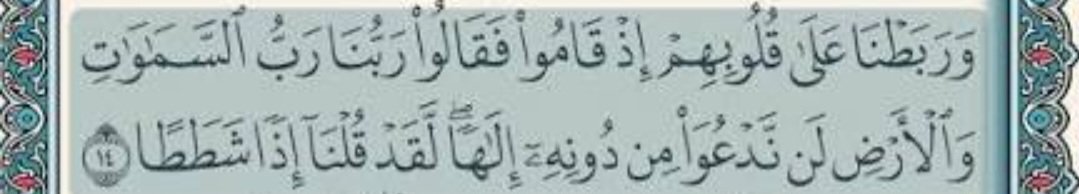 وَرَبَطْنَا عَلَىٰ قُلُوبِهِمْ إِذْ قَامُوا۟ فَقَالُوا۟ رَبُّنَا رَبُّ ٱلسَّمَـٰوَٰتِ
وَٱلْأَرْضِ لَن نَّدْعُوَا۟ مِن دُونِهِۦٓ إِلَـٰهًۭا ۖ لَّقَدْ قُلْنَآ إِذًۭا شَطَطًا ١٤